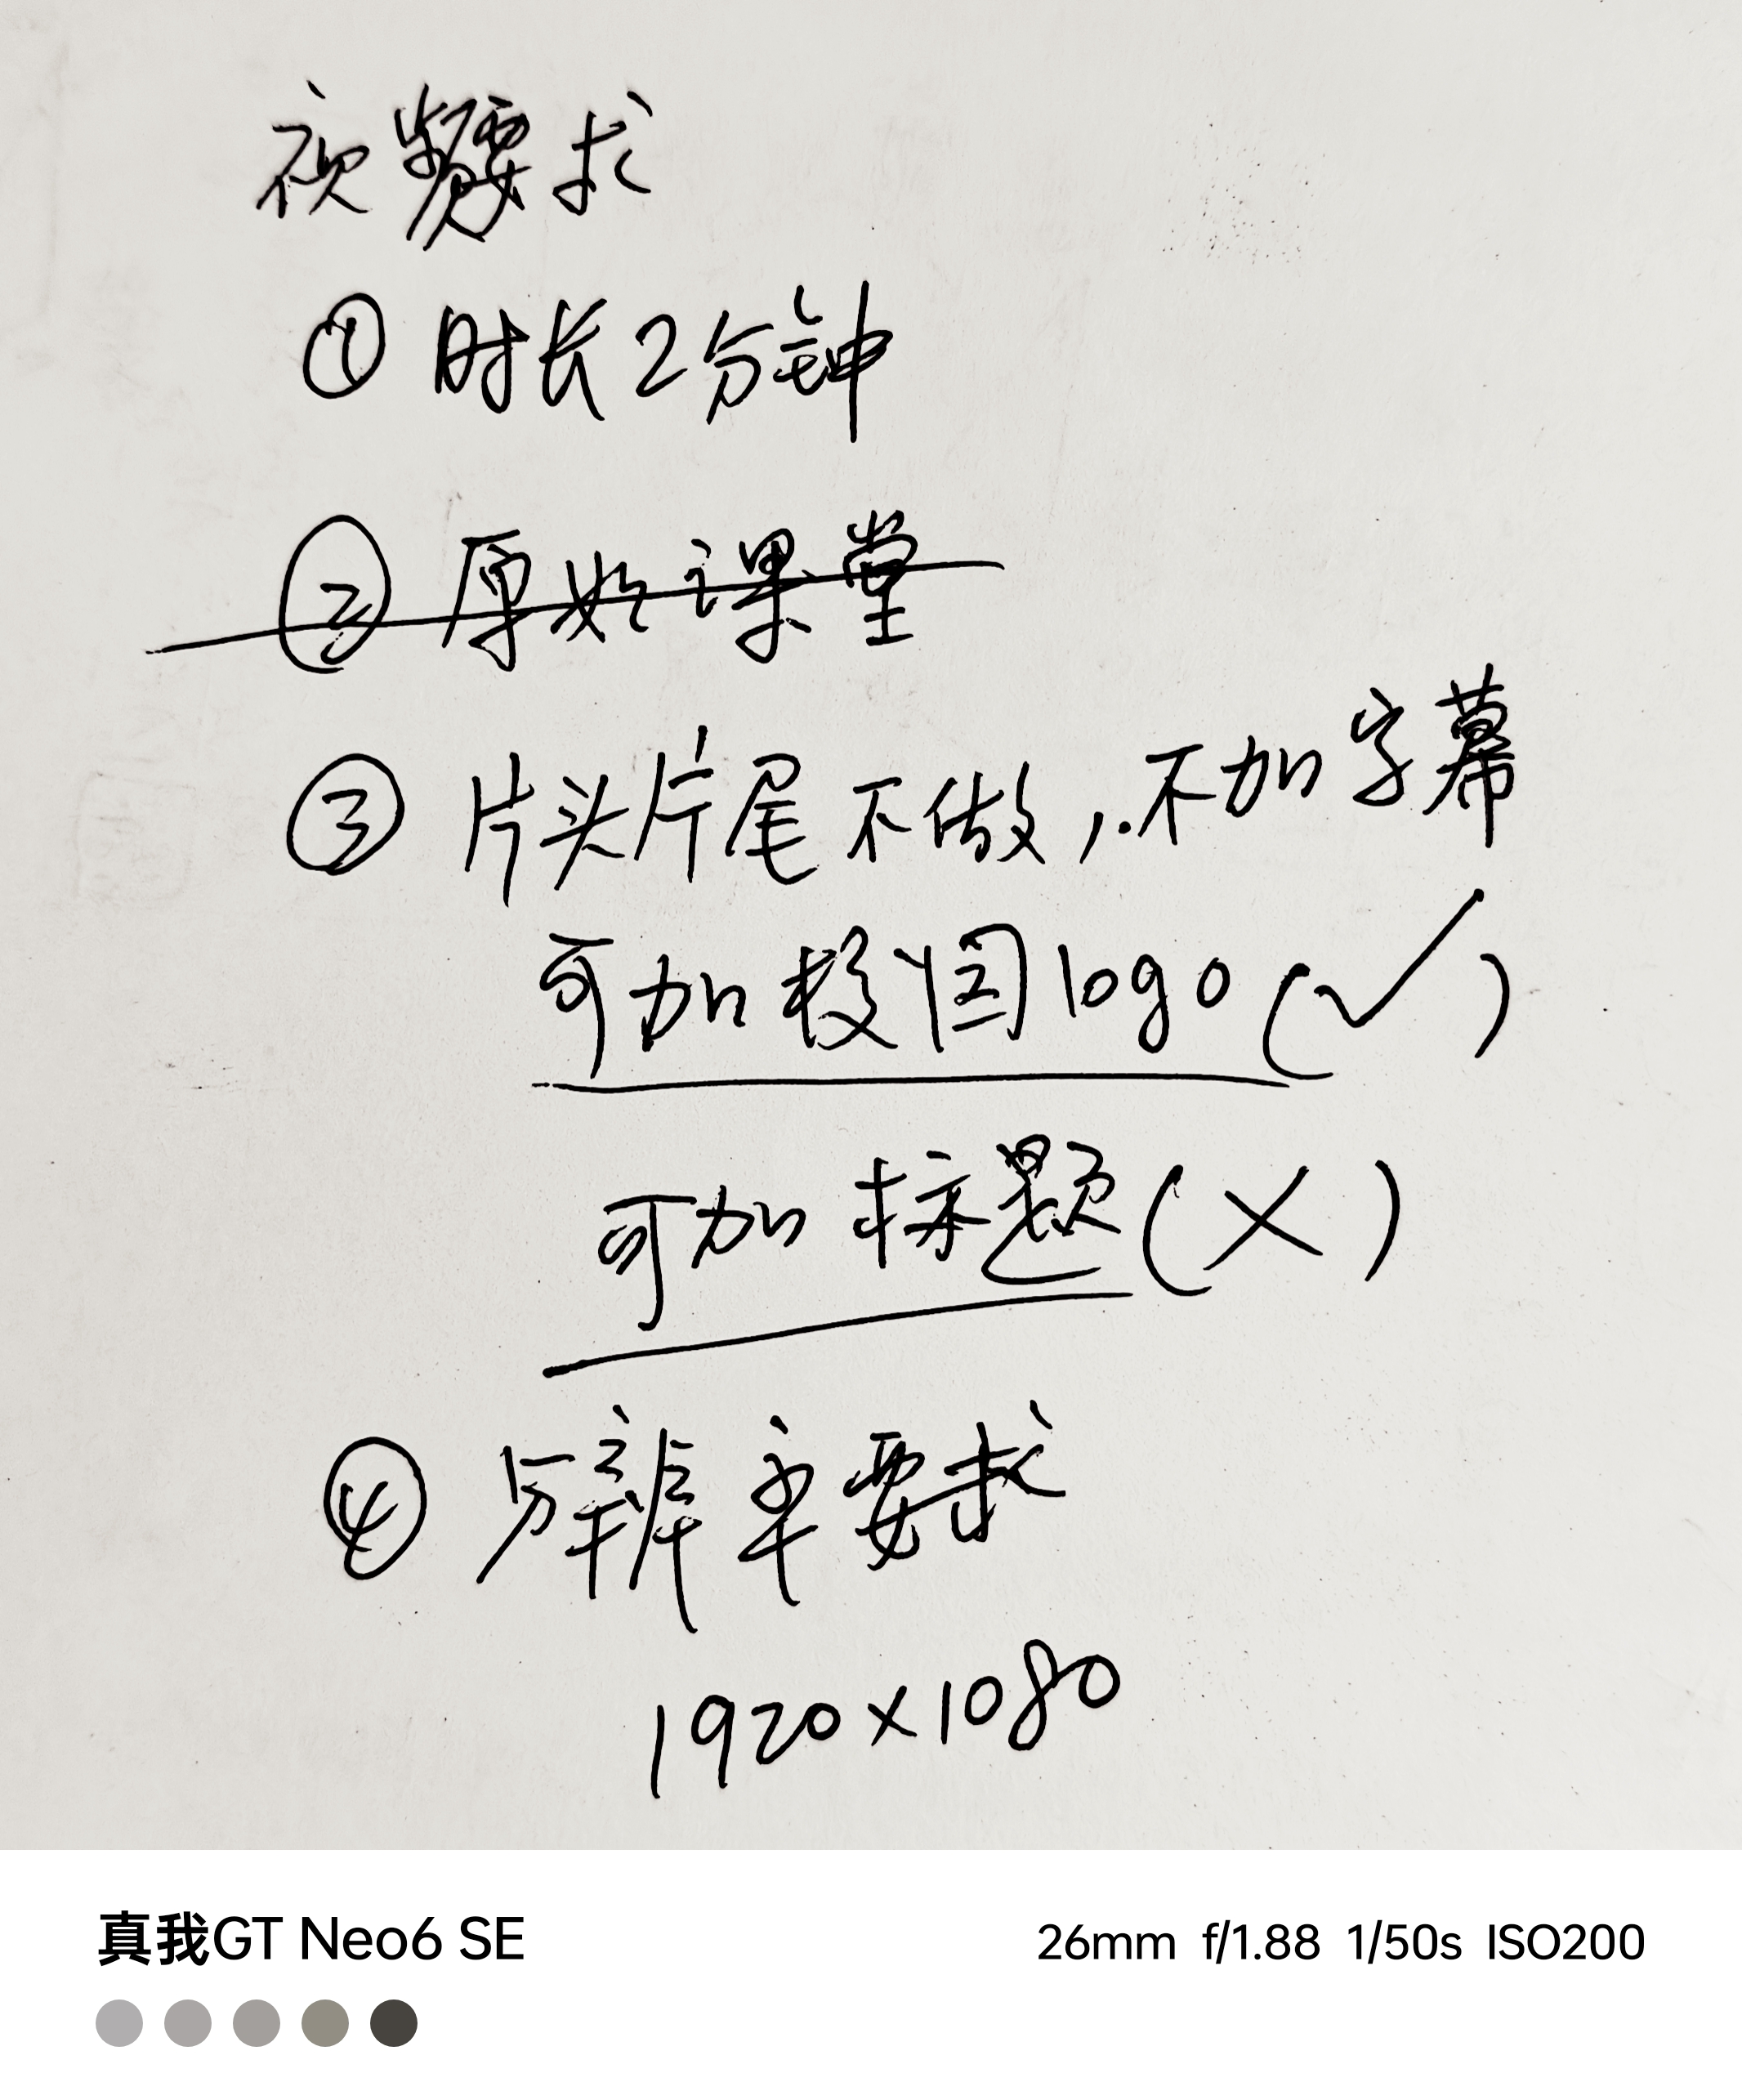 视频要求
① 时长2分钟
② 原始课堂
③ 片头片尾不做，不加字幕
可加校园logo(✓)
可加标题(×)
④ 分辨率要求
1920×1080
真我GT Neo6 SE
26mm f/1.88 1/50s ISO200